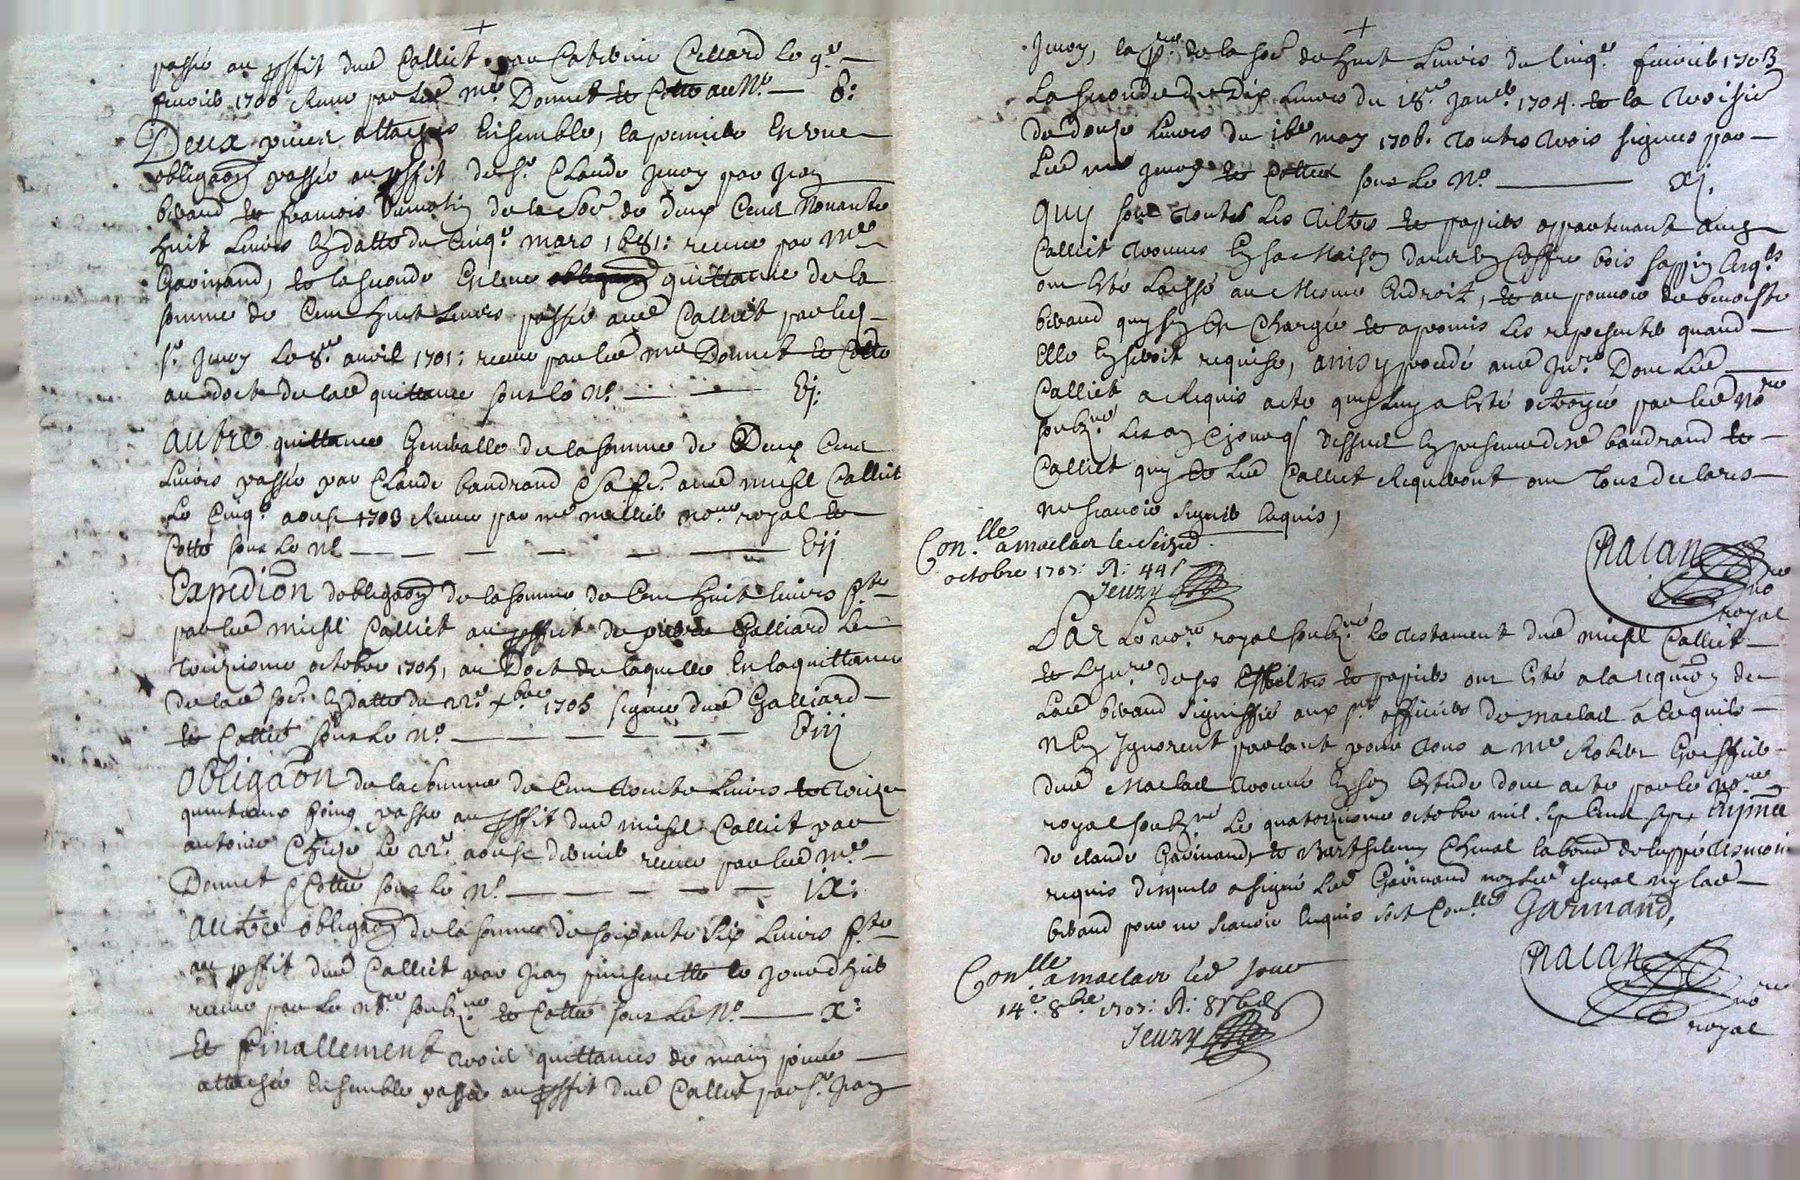 passé au proffit dud Calliet par Catherine Cellard le 9e
fevrier 1700 Receu par led me Donnet et Cotté au No 8:
Deux pieces attachés Ensemble, la premiere Est une
obligaon passée au proffit de sr Claude Jmoy par Jean
bivaud et francois Dumolin de la so͞e de deux Cent Nonante
huit Livres En datte du Cinqe mars 1681: receue par Me
Garinand, et la seconde Est une quittance de la
somme de Cent huit Livres passée aud Calliet par led
sr Jmoy le 8e avril 1701: receue par led me Donnet et Cotté
au doct de lad quittance sous le No 6j:
Autre quittance Generalle de la somme de Deux Cent
Livres passée par Claude baudrand aud michl Calliet
Le Cinqe aoust 1703 Receue par me nore royal et
Cotté sous le No 6ij
Expedion dobligaon de la somme de Cent huit livres pte
par led michl Calliet au proffit de pierre Galliard le
treizieme octobre 1705, au Doct de laquelle Est la quittance
de lad so͞e En datte du 22e xbre 1705 signée dud Galliard
et Cottée sous le No 6iij
Obligaon de la somme de Cent trente Livres et treize
quintaux foing passée au proffit dud michel Calliet par
antoine le 22e aoust dernier receue par led me
Donnet Cottée sous le No ix:
Autre obligaon de la somme de soixante six Livres pte
au proffit dud Calliet par Jean le Jourdhuy
receue par le nore soubzne et Cottée sous le No X:
Et finallement trois quittances de main privée
attachée Ensemble passée au proffit dud Calliet par sr Jean
Jmoy, la pre de la so͞e de huit Livres du Cinqe fevrier 1703
La seconde de Dix Livres du 18e Janer 1704. et la troisie
de douze Livres du may 1706. toutes trois signées par
Led me Jmoy et Cottées sous le No xj.
Quy sont toutes Les tiltres et papiers appartenant aud
Calliet trouvés En sa Maison dans Un Coffre bois sappin lesqls
ont Esté Laissé au Mesme Endroit, et au pouvoir de benoiste
bivaud quy sen Est Chargée et a promis les representer quand
Elle En seroit requise, ainsy procedé aud Inre Dont Led
Calliet a Requis acte quy luy a Esté octroyé par led Nore
soubzne Les an & jour qs dessus En presence baudrand et
Calliet quy et Led Calliet Requerant ont tous declarés
ne scavoir signer Enquis,
Conlle a maclar le seized
octobre 1707: R: 44s
Jeuzy
Chalan
nore
royal
Par Le nore royal soubzné le testament dud michl Calliet
et Lynre de ses Effects et papiers ont Esté a la requion de
Lad bivaud signiffié aux srs officiers de Maclar a ce quils
nEn Ignorent parlant pour tous a me Robert Greffier
dud Maclar trouvé En son Estude dont acte par le Nore
royal soubzné Le quatorzieme octobre mil sept Cent sept En pnce
de claude Garinand, et Barthelemy Cheval tesmoins
requis desquels a signé Led Garinand non Led cheval ny lad
bivaud pour ne scavoir Enquis soit Conllé Garinand,
Conlle a maclar led Jour
14e 8bre 1707: R: 8s 6d
Jeuzy
Chalan
nore
royal